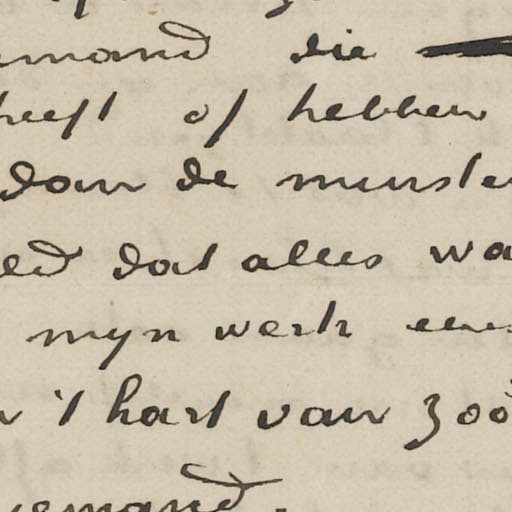 emand die
heeft of hebben
dan de minste
ed dat alles wa
mijn werk een
't hart van zoo
iemand.